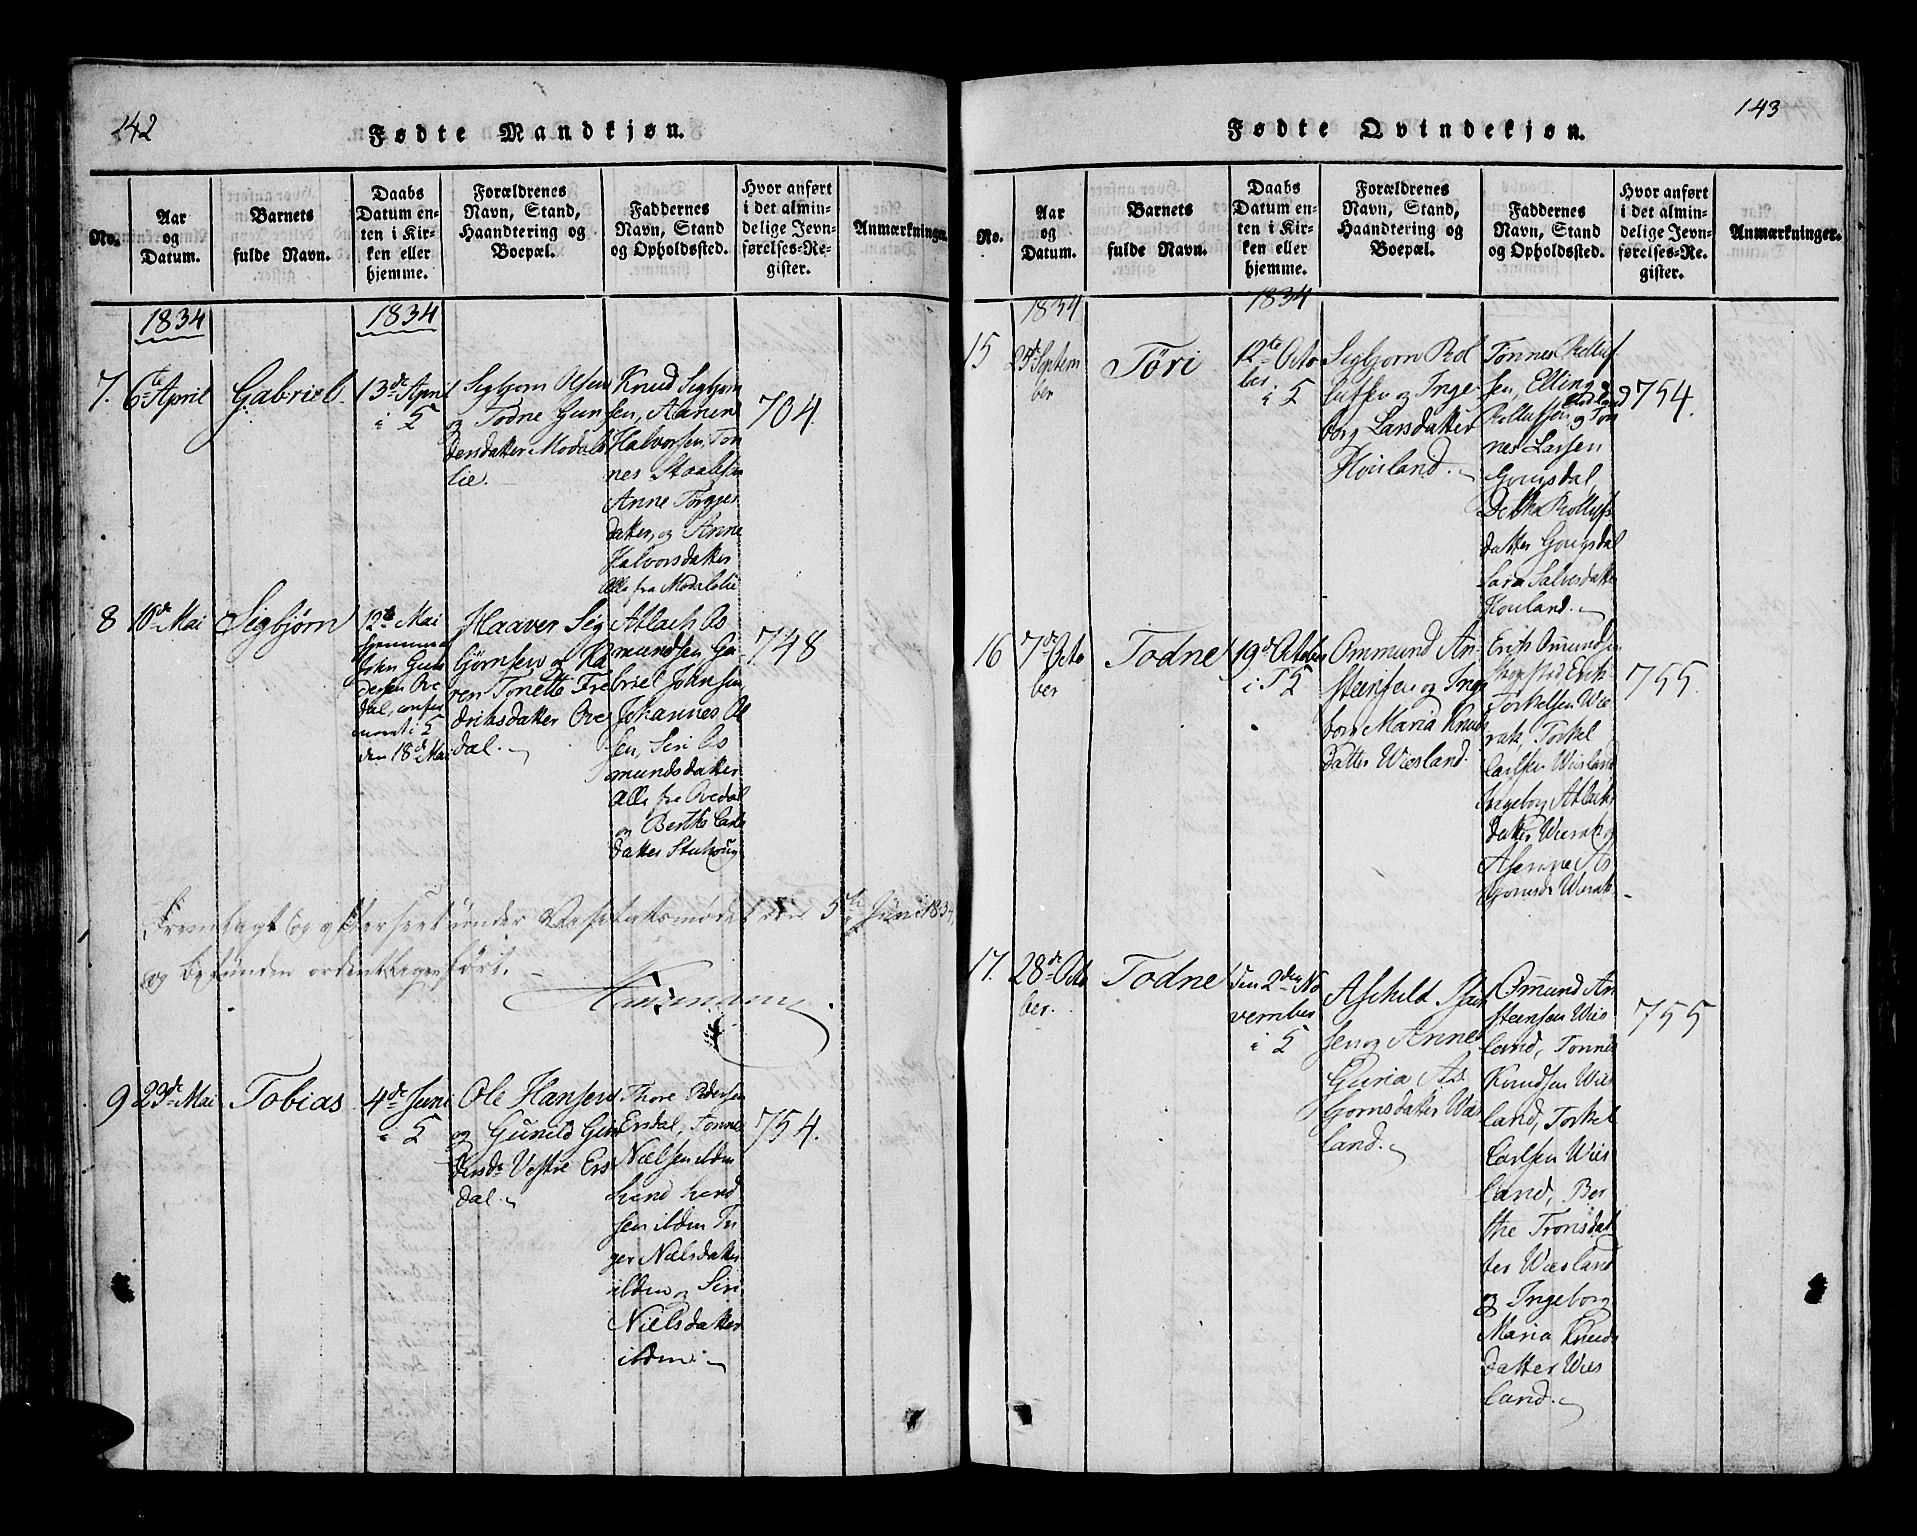 142
Fødte Mandkjøn.
No.
Aar
og
Datum.
Barnets
fulde Navn.
Daabs
Datum en-
ten i Kir-
ken eller
hjemme.
Forældrenes
Navn, Stand,
Haandtering og
Boepæl.
Faddernes
Navn, Stand
og Opholdssted.
Hvor anført
i det almin-
delige Jevn-
førelses-Re-
gister.
Anmærkninger.
1834
1834
7.
6te April
Gabriel.
13de April
i S
Sigbjørn Olsen
og Todne Gun
dersdatter Modals
lie.
Knud Sigbjørn
sen, Aanen
Halvorsen, Ton
nes Staalesen
Anne Torgers
datter, og Anne
Halvorsdatter
Alle fra Modalslie
704.
8
10de Mai
Sigbjørn
12te Mai
hjemme
John Gun
dersen Ove
dal, confir
mert i S
den 18de Mai
Haaver Sig
bjørnsen og Ka
ren Tonette Fre
driksdatter Ove
dal.
Atlach Os
mundsen Ga-
briel Johnsen
Johannes Ol
sen, Siri Os
mundsdatter
Alle fra Ovedal
og Berthe Carls
datter Stuhoug
748
Fremlagt og efterseet under Visitatsmødet den 5te Juni 1834,
og befunden ordentligen ført.
9
23de Mai
Tobias
4de Juni
i S
Ole Hansen
og Gunild Gun
dersdr Vestre Ers
dal.
Thore Pedersen
Ersdal, Tønnes
Nielsen ilden
Nielsdatter
ilden og Siri
Nielsdatter
ilden.
754.
143
Fødte Qvindekjøn.
No.
Aar
og
Datum.
Barnets
fulde Navn.
Daabs
Datum en-
ten i Kir-
ken eller
hjemme.
Forældrenes
Navn, Stand,
Haandtering og
Boepæl.
Faddernes
Navn, Stand
og Opholdssted.
Hvor anført
i det almin-
delige Jevn-
førelses-Re-
gister.
Anmærkninger.
1834
1834
15
25de Septem
ber
Töri
12te Octo
ber
i S
Sigbjørn Rol
lufsen og Inge
borg Larsdatter
Houland.
Tønnes Rolluf
sen, Elling
Rollufsen
og Ton
nes Larsen
Gougsdal,
Rollufs
datter Gougsdal
Sara Salvesdatter
Houland.
754.
16
7de Octo
ber
Todne
19de October
i S
Ommund An-
steensen og Inge
borg Maria Knuds
datter Wiesland.
Erich Omundsen
Erik
Torkelsen Wie
rak, Torkel
Carlsen Wiesland
Ingeborg Atlachs
datter Wierak og
Asenne As
biornsdr Wierak.
755.
17.
28de Octo
ber.
Todne
den 2den No
vember
i S
Aschild Isach
sen og Anne
Guria As
biornsdatter Wies
land.
Omund An
steensen Wies
land, Tønnes
Knudsen Wies
land, Torkel
Carlsen Wies
land, Ber
the Tronsdat
ter Wiesland
og Ingeborg
Maria Knuds
datter Wies
land.
755